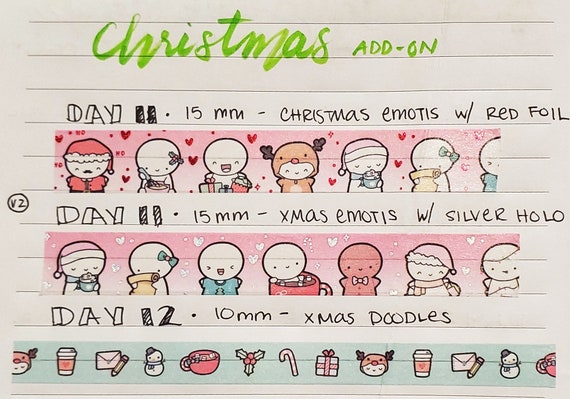 Christmas ADD-ON
DAY 11 · 15 mm - CHRISTMAS EMOTIS W/ RED FOIL
HO
HO
HO
V2
DAY 11 · 15mm - XMAS EMOTIS W/ SILVER HOLO
DAY 12 · 10mm - XMAS DOODLES